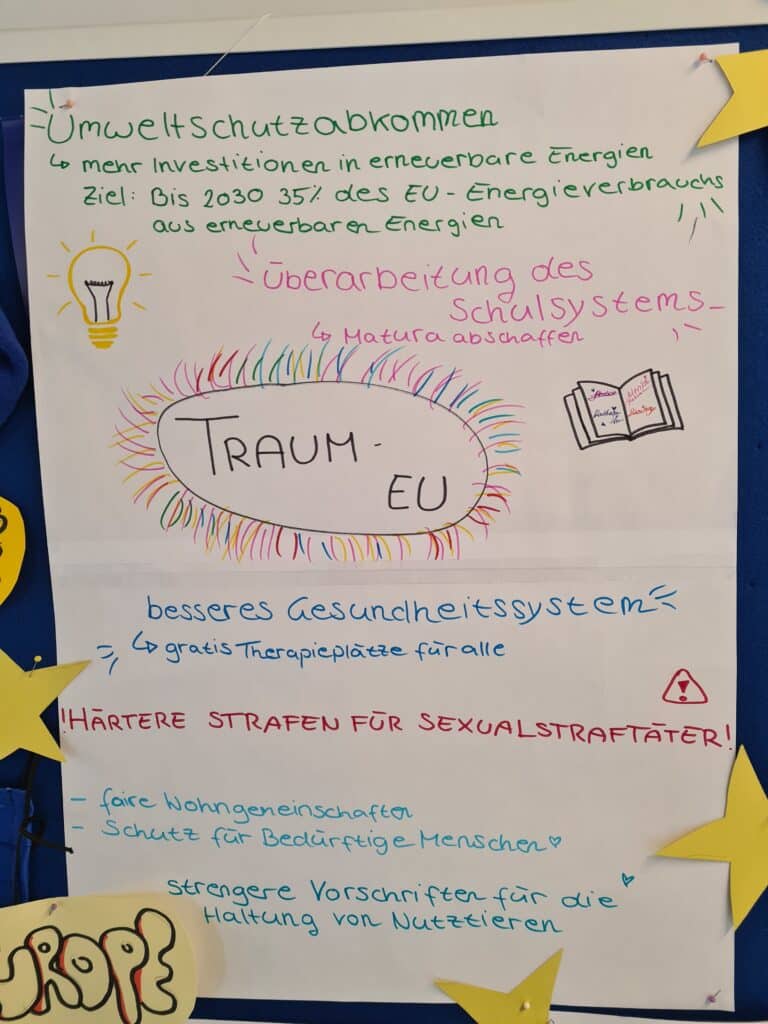 Umweltschutzabkommen
↳ mehr Investitionen in erneuerbare Energien
Ziel: Bis 2030 35% des EU - Energieverbrauchs
aus erneuerbaren Energien
Überarbeitung des
Schulsystems
↳ Matura abschaffen
TRAUM -
EU
besseres Gesundheitssystem
↳ gratis Therapieplätze für alle
!HÄRTERE STRAFEN FÜR SEXUALSTRAFTÄTER!
- faire Wohngeneinschaften
- Schutz für Bedürftige Menschen
strengere Vorschriften für die
Haltung von Nutztieren
UROPE